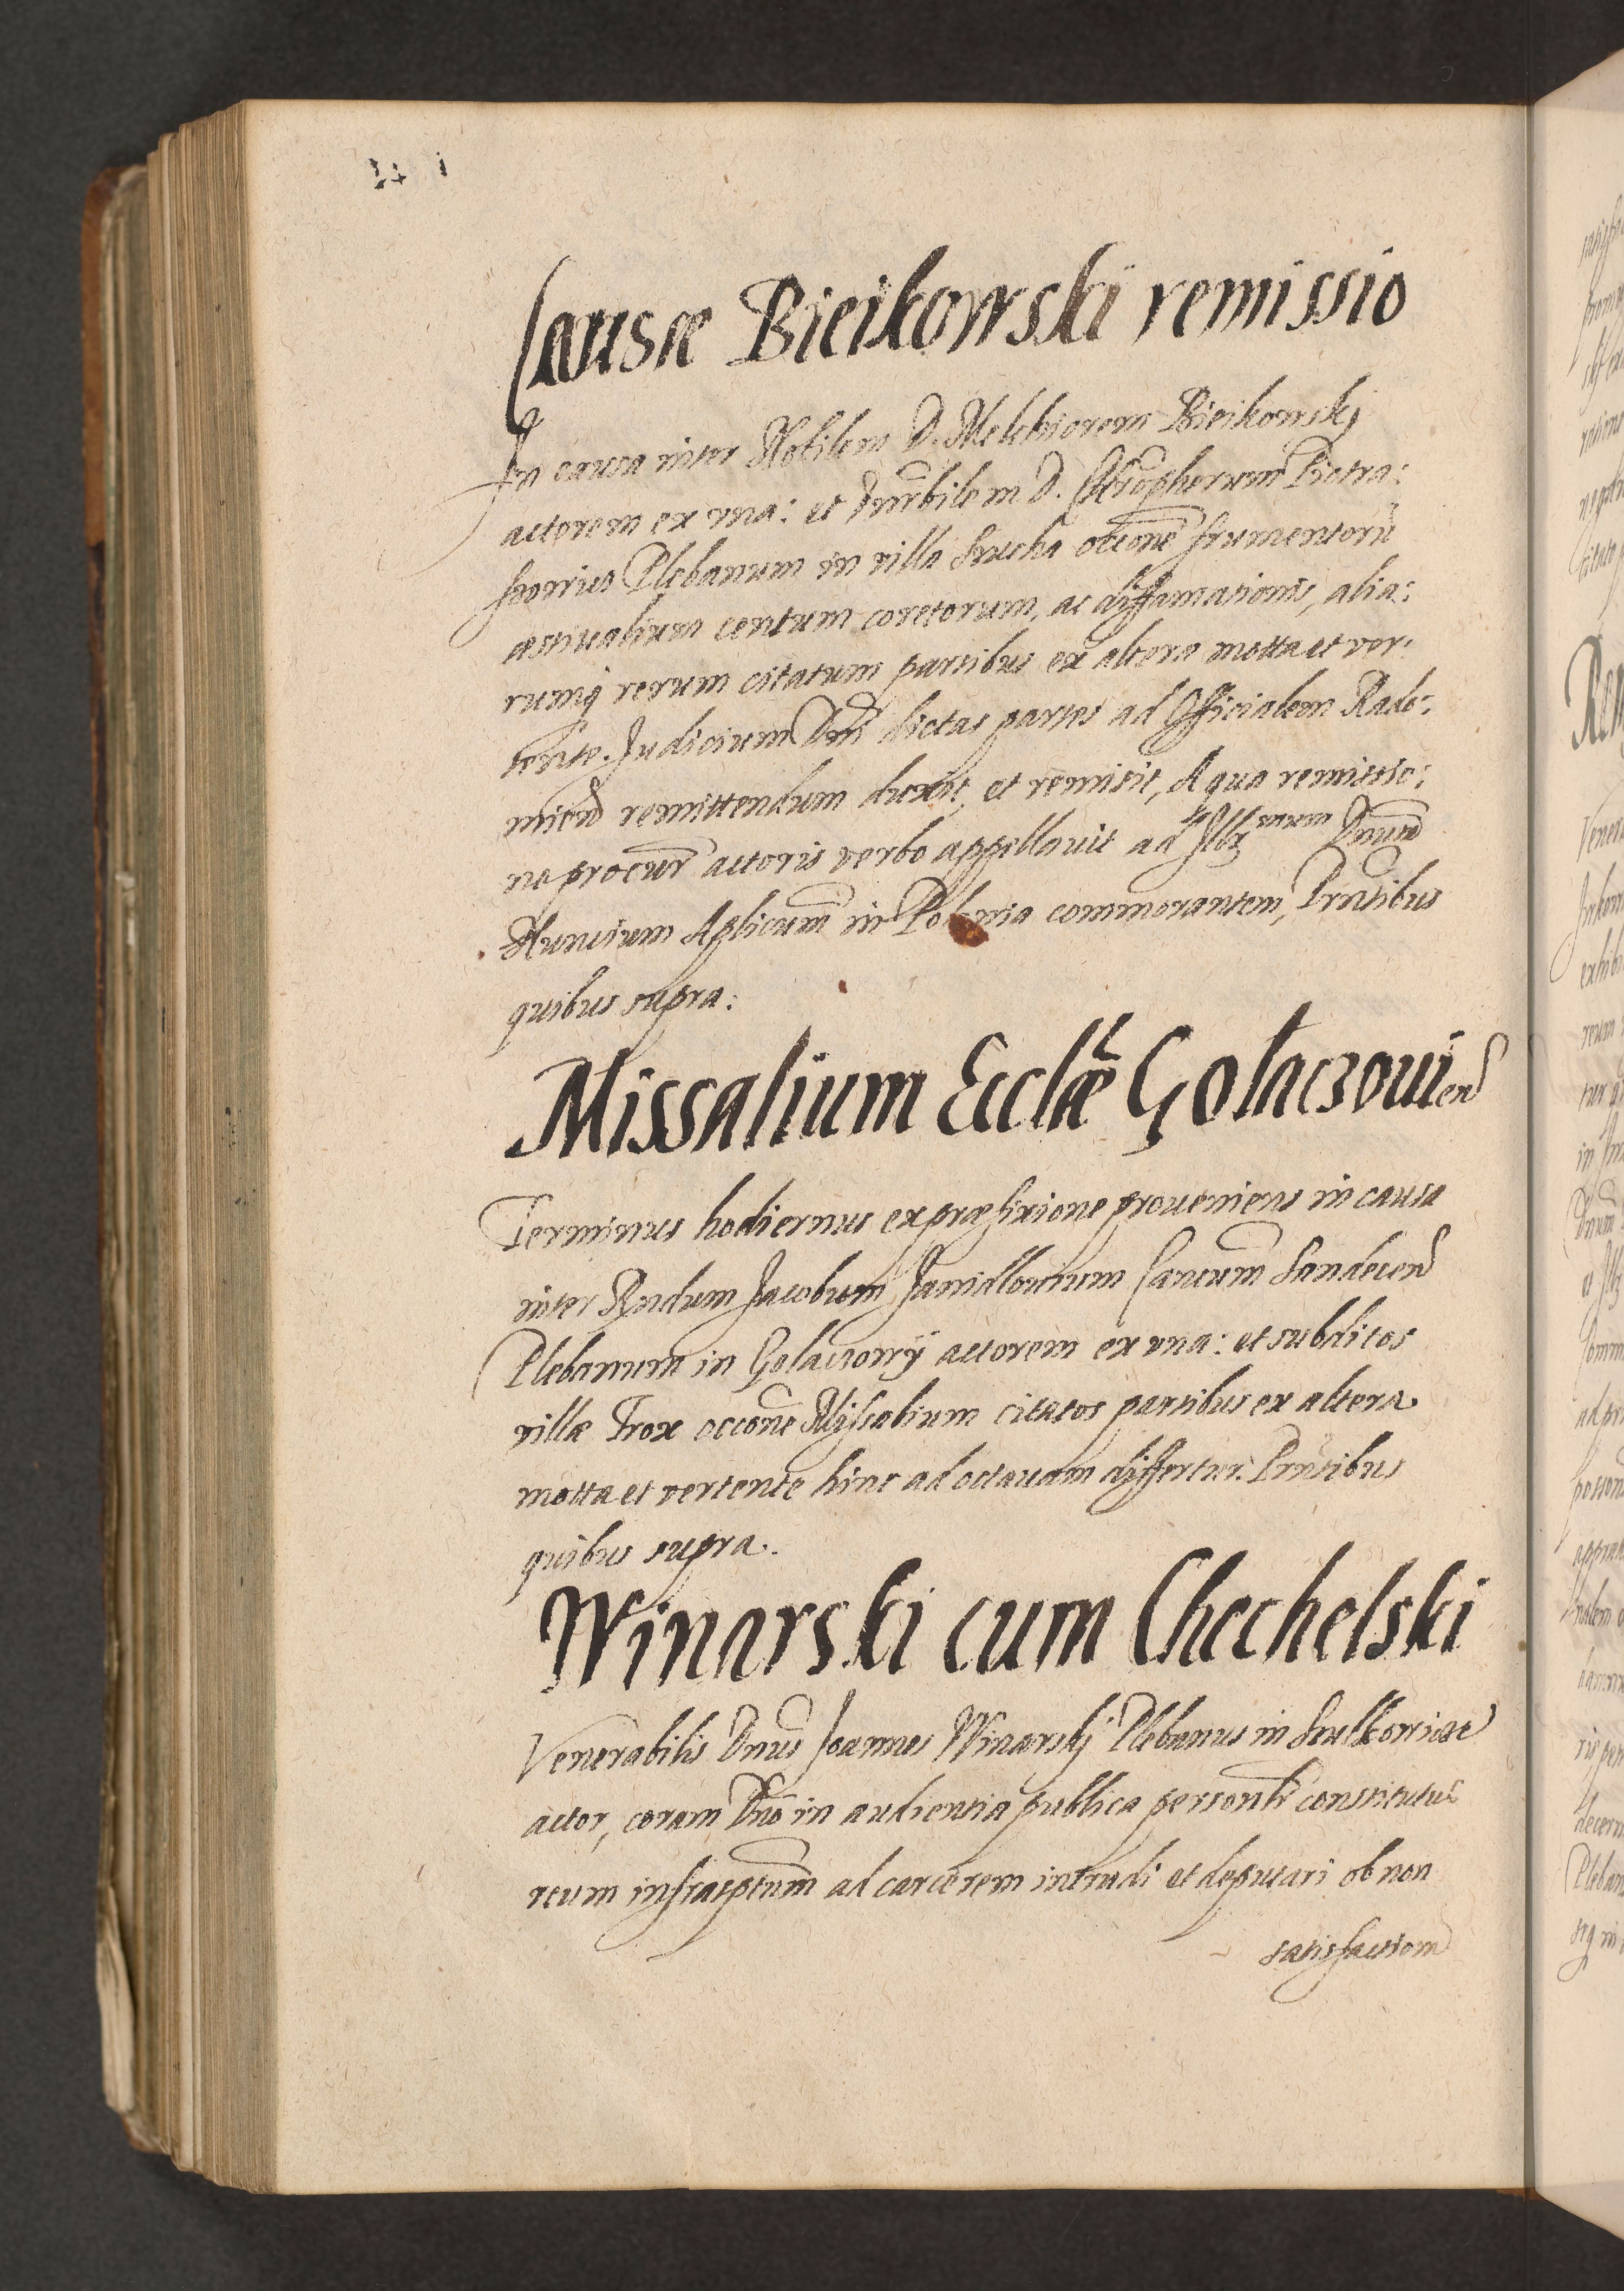 Causæ Bieikowski remissio
In causa inter Nobilem D. Melchiorem Bieikowskj
actorem ex vna: et Venerabilem D. Christopherum Pietra:
Plebanum in villa Sucha occone frumentorũ
æstiualium centum coretorum, ac diffamationis, alia:
rumq rerum citatum partibus ex altera motta et ver:
tente. Judicium Dni dictas partes ad Officialem Rado:
mien remittendum duxit, et remisit, A qua remissio:
ne procur actoris verbo appellauit ad Illr mum Dnum
Nuncium Aplicum in Polonia commorantem, Prntibus
quibus supra:
Missalium Ecclæ Golaczouien
Terminus hodiernus ex præfixione proueniens in causa
inter Rndum Jacobum Janidlouium Cancum Sandecen
Plebanum in Golaczowÿ actorem ex vna: et subditos
villæ Trox occone Missalium citatos partibus ex altera
motta et vertente hinc ad octauam differtur. Prntibus
quibus supra.
Winarski cum Chechelski
Venerabilis Dnus Joannes Winarskj Plebanus in Sulkowice
actor, coram Dno in audientia publica personlr constitutus
reum infrascptum ad carcerem intrudi et deputari ob non
satisfactiom